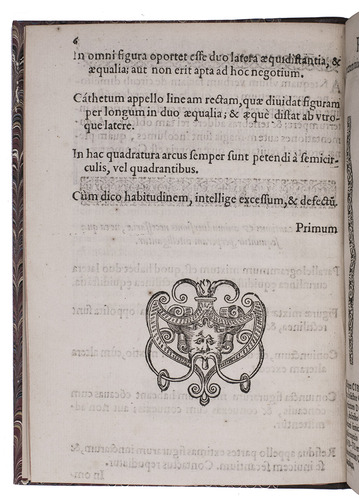 6
In omni figura oportet esse duo latera æquidistantia, &
æqualia; aut non erit apta ad hoc negotium.
Cáthetum appello lineam rectam, quæ diuidat figuram
per longum in duo æqualia; & æquè distat ab vtro-
que latere.
In hac quadratura arcus semper sunt petendi à semicir-
culis, vel quadrantibus.
Cùm dico habitudinem, intellige excessum, & defectũ.
Primum